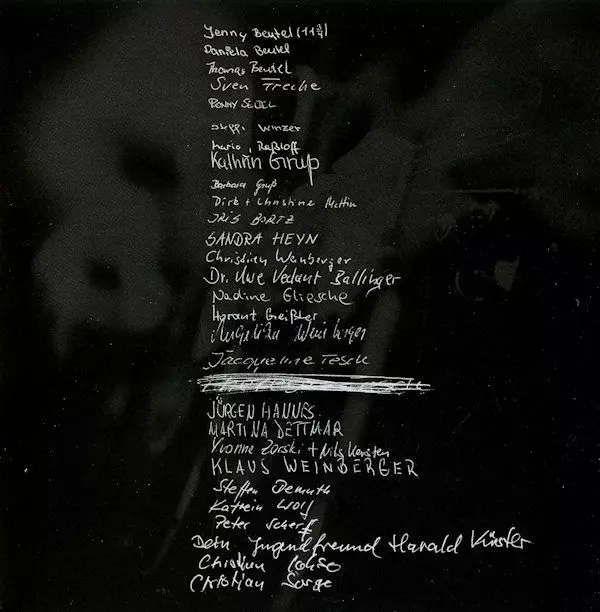 Jenny Beutel (11 3/4)
Daniela Beutel
Thomas Beutel
Sven Treche
RONNY SEDEL
Steffi Winzer
Mario Raßloff
Kathrin Grup
Barbara Gruß
Dirk + Christine Mattin
IRIS BORTZ
SANDRA HEYN
Christian Weinberger
Dr. Uwe Vedant Ballinger
Nadine Gliesche
Horant Greißler
Angelika Weinberger
Jacqueline Tesch
JÜRGEN HANNES
MARTINA DETTMAR
Yvonne Zorski + Nils Kersten
KLAUS WEINBERGER
Steffen Demuth
Katrein Wolf
Peter Scherff
Dein Jugendfreund Harald Küster
Christian
Christian Sorge